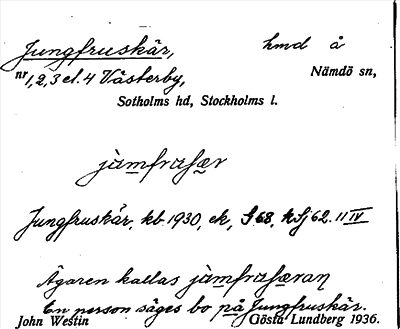 Jungfruskär, hmd å
nr 1,2,3 el. 4 Västerby, Nämdö sn,
Sotholms hd, Stockholms l.
jàmfrafær
Jungfruskär, kb 1930, ek, S 68, hSj 62. 11 IV
Ägaren kallas jàmfrafæran
En person säges bo på Jungfruskär.
John Westin Gösta Lundberg 1936.